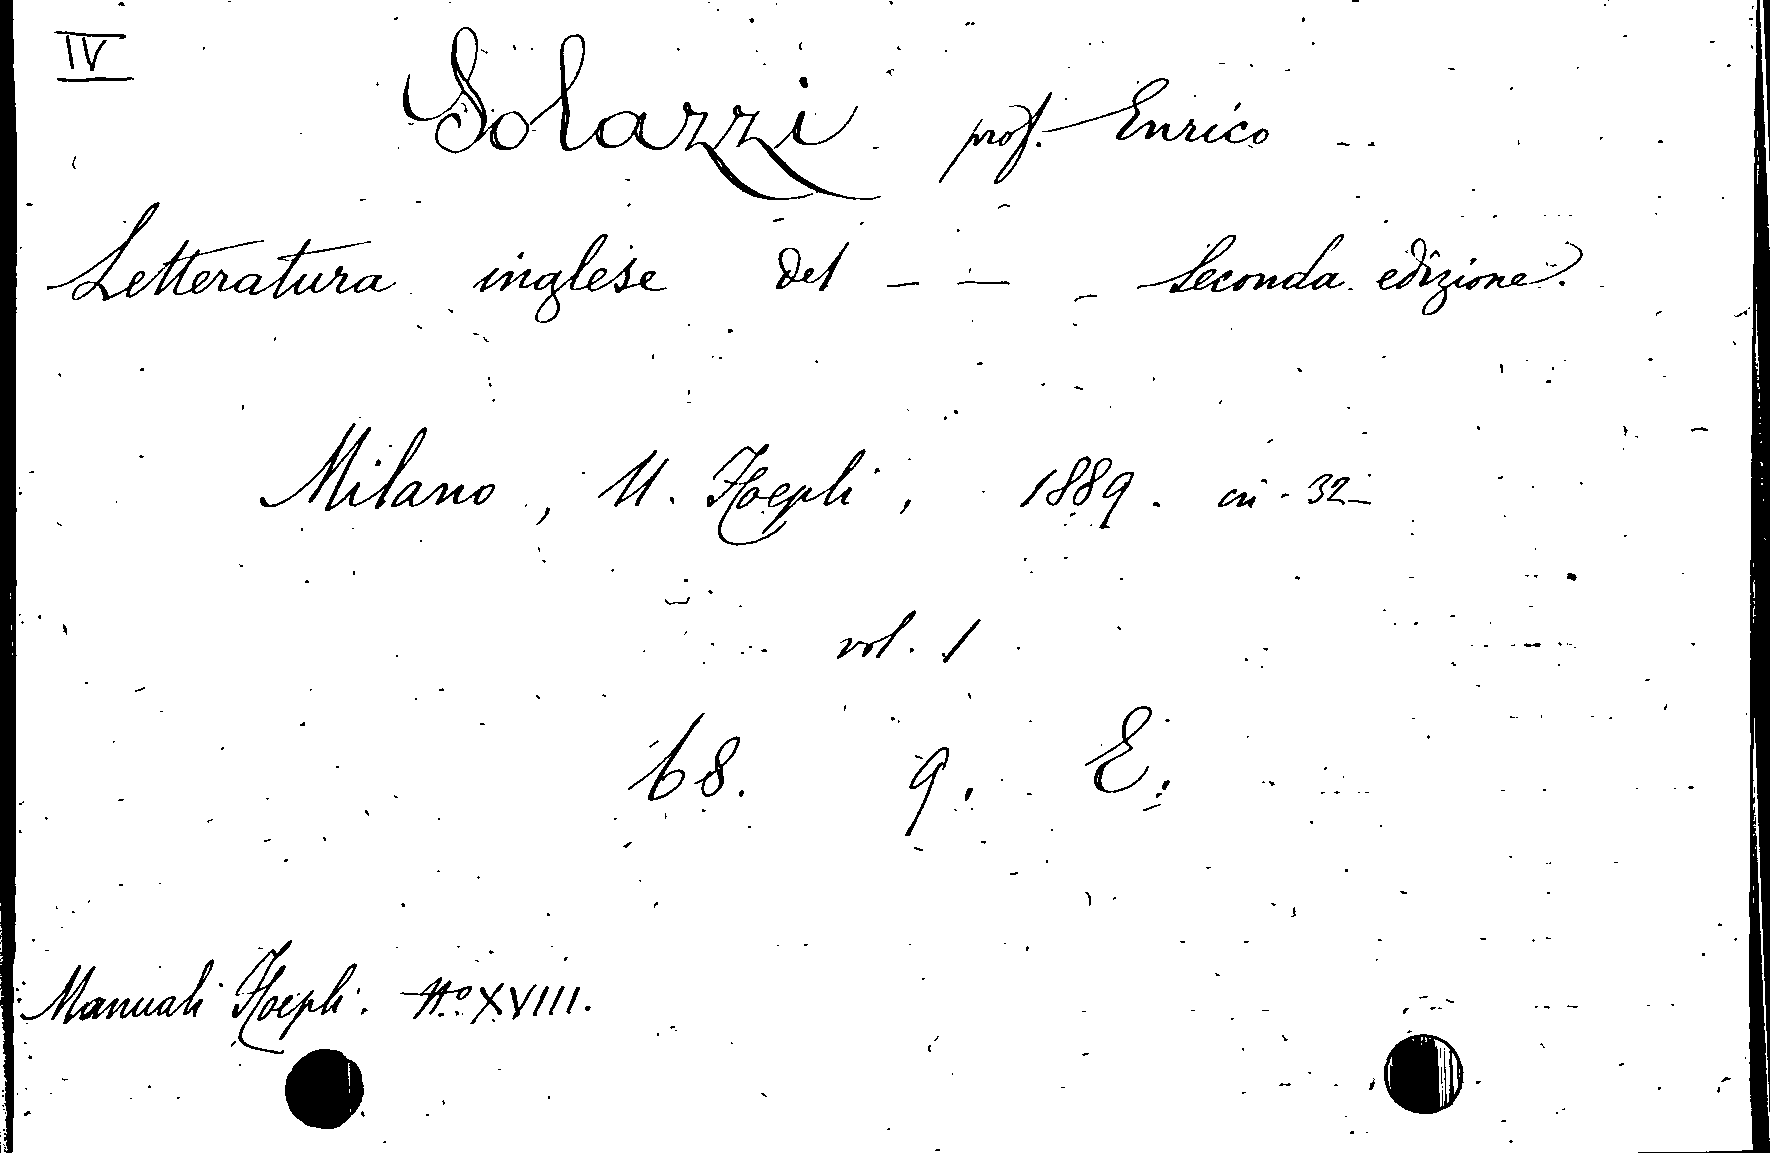 IV
Solazzi prof. Enrico
Letteratura inglese del — — — Seconda edizione.
Milano, U. Hoepli, 1889. in-32
vol. 1
68. 9. E.
Manuali Hoepli. No. XVIII.